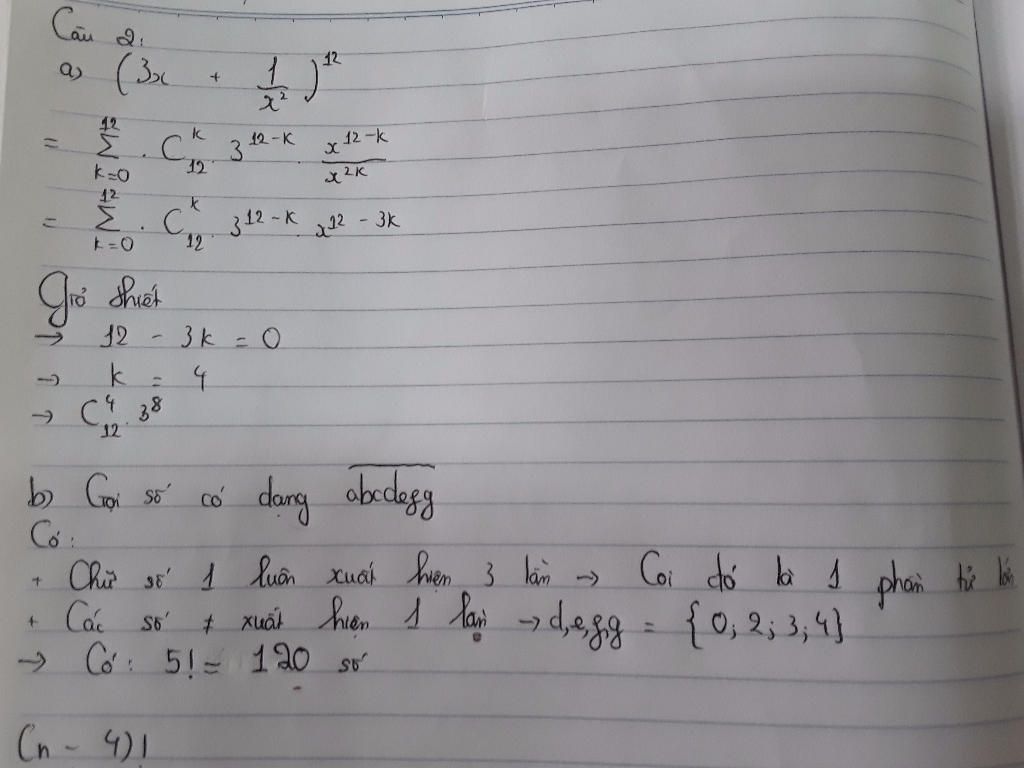 Câu 2:
a) (3x + 1/x²)¹²
= Σ_{k=0}^{12} . C_{12}^{k} . 3^{12-k} . x^{12-k}/x^{2k}
= Σ_{k=0}^{12} . C_{12}^{k} . 3^{12-k} . x^{12-3k}
Giả thiết
→ 12 - 3k = 0
→ k = 4
→ C_{12}^{4} . 3^8
b) Gọi số có dạng \overline{abcdefg}
Có:
+ Chữ số 1 luôn xuất hiện 3 lần → Coi đó là 1 phần tử lớn
+ Các số ≠ xuất hiện 1 lần → d,e,f,g = {0; 2; 3; 4}
→ Có: 5! = 120 số
(n - 4)!